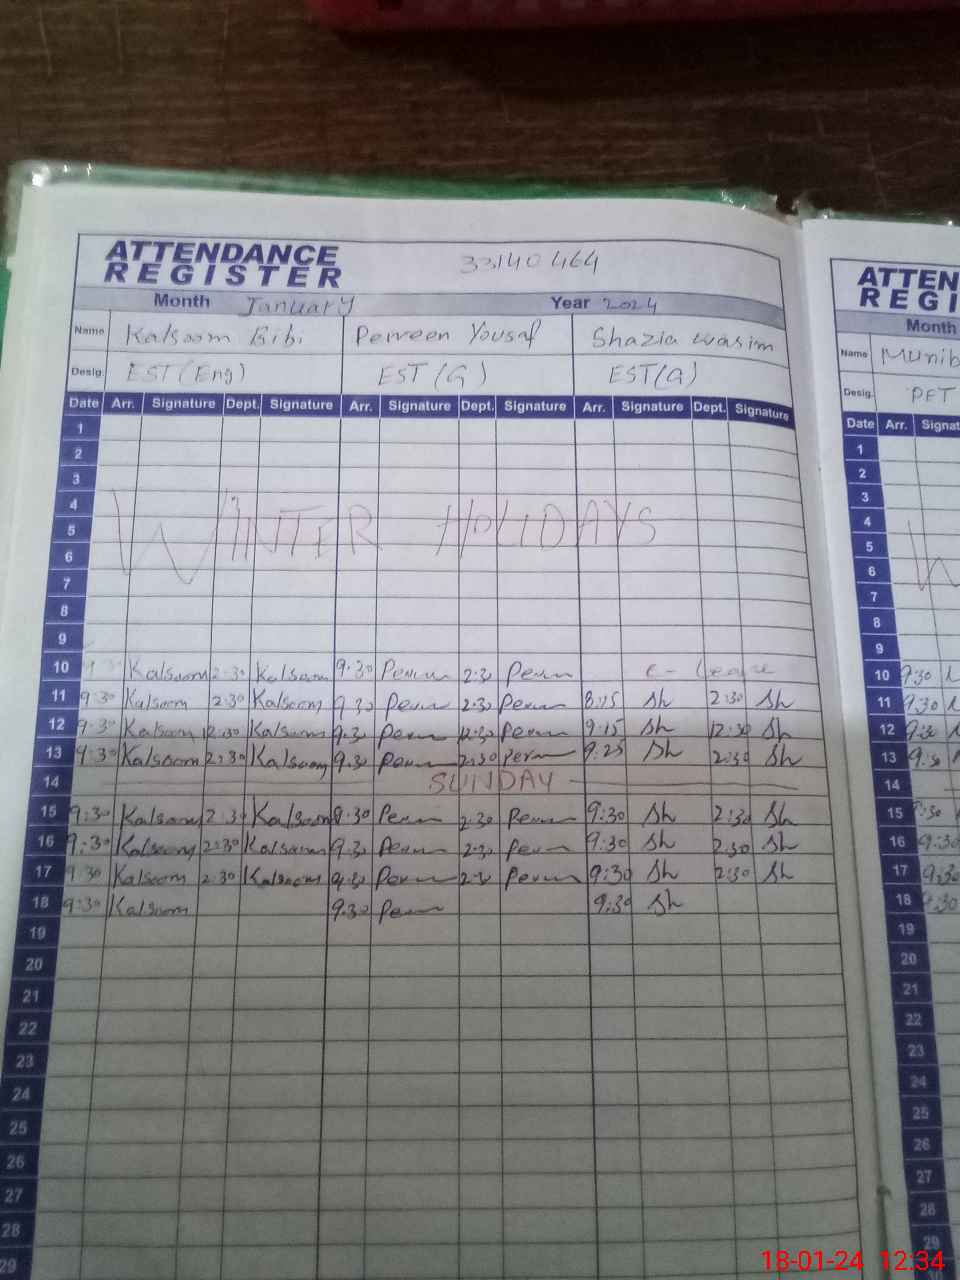 ATTENDANCE
REGISTER
33140464
Month January Year 2024
Name Kalsoom Bibi Perveen Yousaf Shazia wasim
Desig. EST (Eng) EST (G) EST(G)
Date Arr. Signature Dept. Signature Arr. Signature Dept. Signature Arr. Signature Dept. Signature
1
2
3
4
WINTER HOLIDAYS
5
6
7
8
9
10 9:30 Kalsoom 2:30 Kalsoom 9:30 2:30 C- Leave
11 9:30 Kalsoom 2:30 Kalsoom 9:30 2:30 8:15 Sh 2:30 Sh
12 9:30 Kalsoom 12:30 Kalsoom 9:30 12:30 9:15 Sh 12:30 Sh
13 9:30 Kalsoom 2:30 Kalsoom 9:30 2:30 9:25 Sh 2:30 Sh
14 SUNDAY
15 9:30 Kalsoom 2:30 Kalsoom 9:30 2:30 9:30 Sh 2:30 Sh
16 9:30 Kalsoom 2:30 Kalsoom 9:30 2:30 9:30 Sh 2:30 Sh
17 9:30 Kalsoom 2:30 Kalsoom 9:30 2:30 9:30 Sh 2:30 Sh
18 9:30 Kalsoom 9:30 9:30 Sh
19
20
21
22
23
24
25
26
27
28
29
ATTEN
REGI
Month
Name Munib
Desig. PET
Date Arr. Signat
1
2
3
4
5
6
7
8
9
10 9:30
11 9:30
12 9:30
13 9:30
14
15 9:30
16 9:30
17 9:30
18 9:30
19
20
21
22
23
24
25
26
27
28
29
18-01-24 12:34